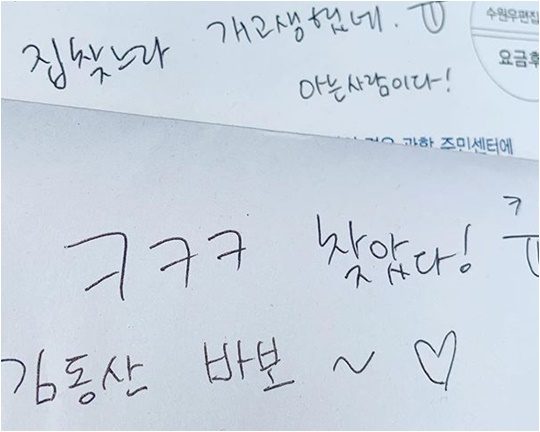 집찾느라 개고생했네. ㅠ
아는사람이다!
수원우편집
요금후
과학 주민센터에
ㅋㅋㅋ 찾았다! ㅋ
ㅠ
김동산 바보 ~ ♡